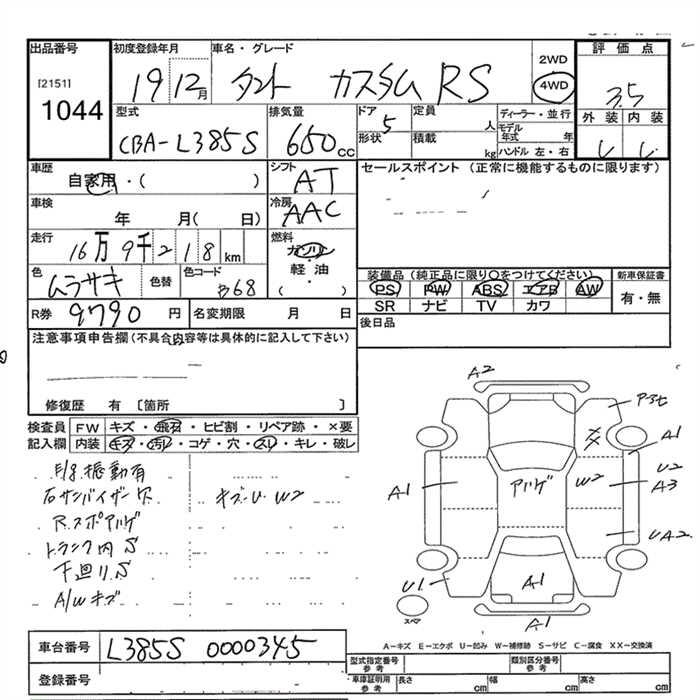 出品番号
[2151]
1044
初度登録年月
19 12月
車名・グレード
タント カスタム RS
2WD
4WD
評価点
3.5
外装 内装
型式
CBA-L385S
排気量
660cc
ドア
5
形状
定員
人
積載
kg
ディーラー・並行
モデル年式 年
ハンドル 左・右
車歴
自家用・( )
シフト
AT
セールスポイント (正常に機能するものに限ります)
車検
年 月( 日)
冷房
AAC
走行
16万9千218km
燃料
ガソリン
軽・油
・( )
色
ムラサキ
色替
色コード
B68
装備品 (純正品に限り○をつけてください)
PS PW ABS エアB AW
SR ナビ TV カワ
新車保証書
有・無
R券
9790円
名変期限 月 日
後日品
注意事項申告欄 (不具合内容等は具体的に記入して下さい)
修復歴 有 〔箇所 〕
検査員記入欄
FW キズ・飛石・ヒビ割・リペア跡・×要
内装 キズ・汚リ・コゲ・穴・スレ・キレ・破レ
振動有
右サンバイザー穴
キズ・U W2
R.スポアハゲ
トランク内 S
下廻り S
A/Wキズ
A2
XX
A1
A1
アハゲ
W2
U2
A3
UA2
U1
A1
A1
スペア
A-キズ E-エクボ U-凹み W-補修跡 S-サビ C-腐食 XX-交換済
車台番号
L385S 0000345
登録番号
型式指定番号参考
類別区分番号参考
車庫証明用参考
長さ cm
幅 cm
高さ cm